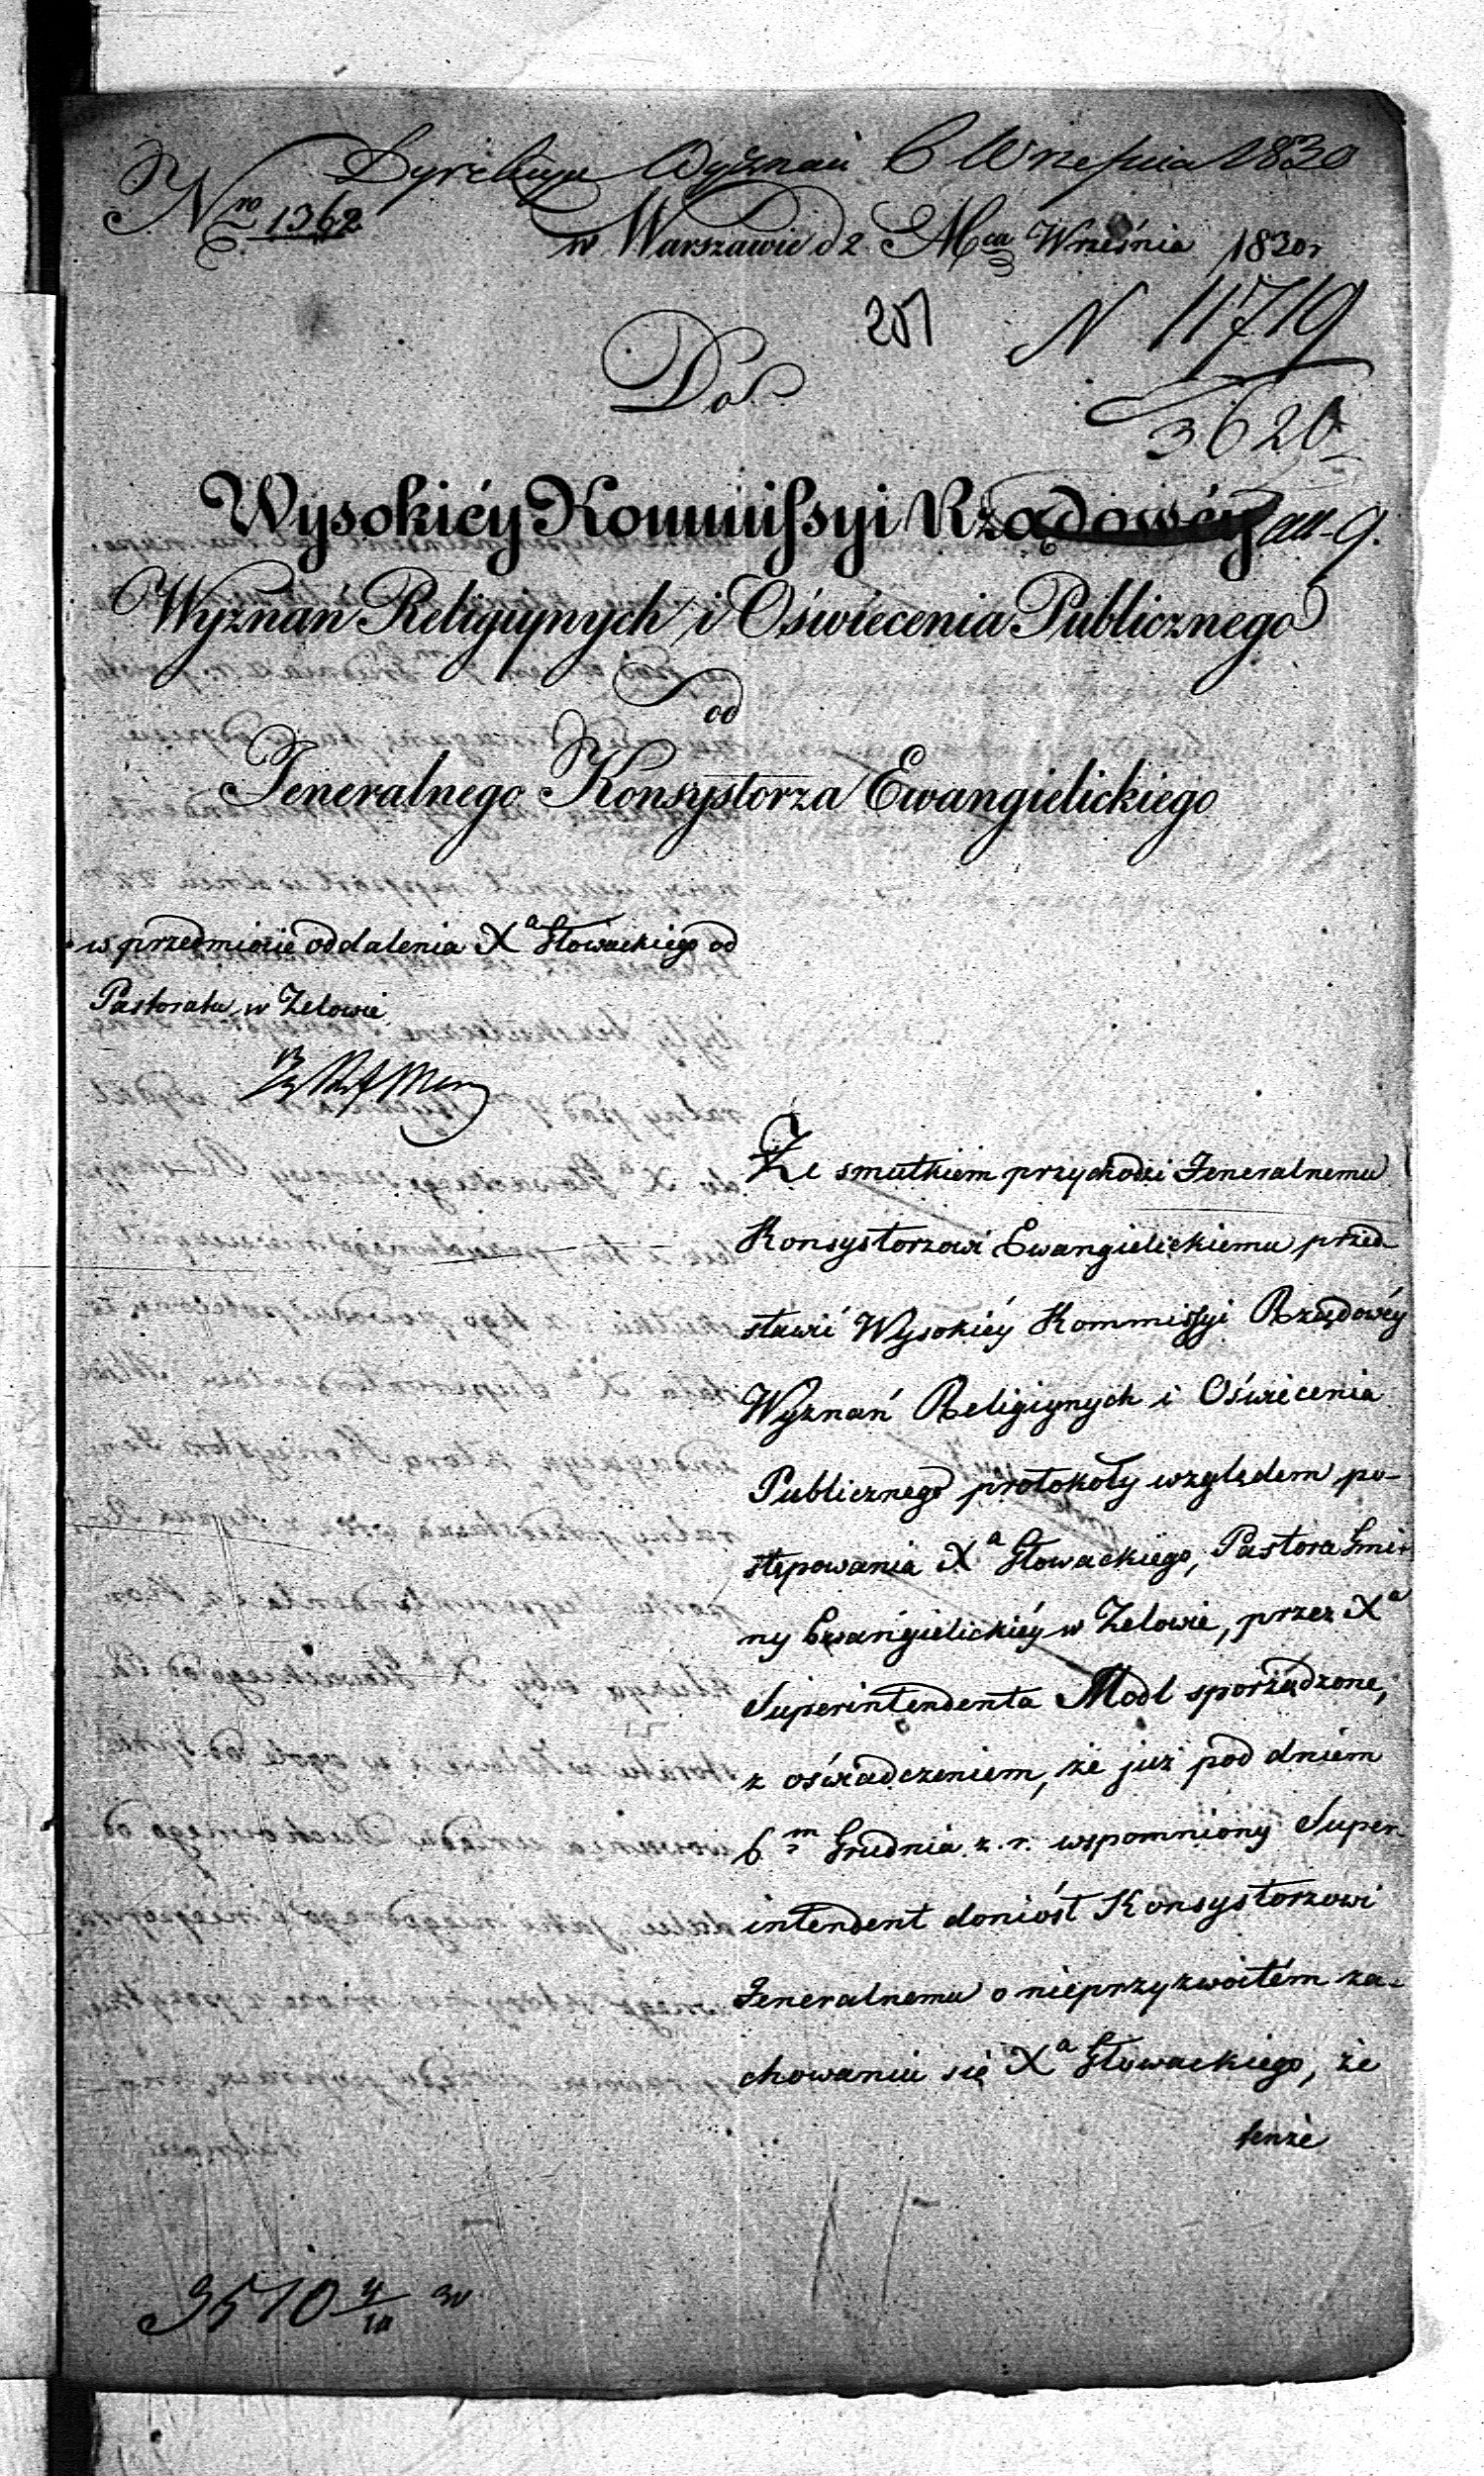 Dyrekcya Wyznań 6 Września 1830
Nro 1362
w Warszawie d 2 Mca Września 1830r
251
N 11719
3620
Do
Wysokiéy Kommissyi Rządowéy
Wyznań Religiynych i Oświecenia Publicznego
od
Jeneralnego Konsystorza Ewangielickiego
w przedmiocie oddalenia Xa Głowackiego od
Pastoratu w Zelowie
Ze smutkiem przychodzi Jeneralnemu
Konsystorzowi Ewangielickiemu przed-
stawić Wysokiéy Kommissyi Rządowéy
Wyznań Religiynych i Oświecenia
Publicznego protokoły względem po-
stępowania Xa Głowackiego, Pastora Gmi-
ny Ewangielickiéy w Zelowie, przez Xa
Superintendenta Modl sporządzone,
z oświadczeniem, że już pod dniem
6m Grudnia z. r. wspomniony Super-
intendent doniósł Konsystorzowi
Jeneralnemu o nieprzyzwoitém za-
chowaniu się Xa Głowackiego, że
tenże
3510 4/10 30